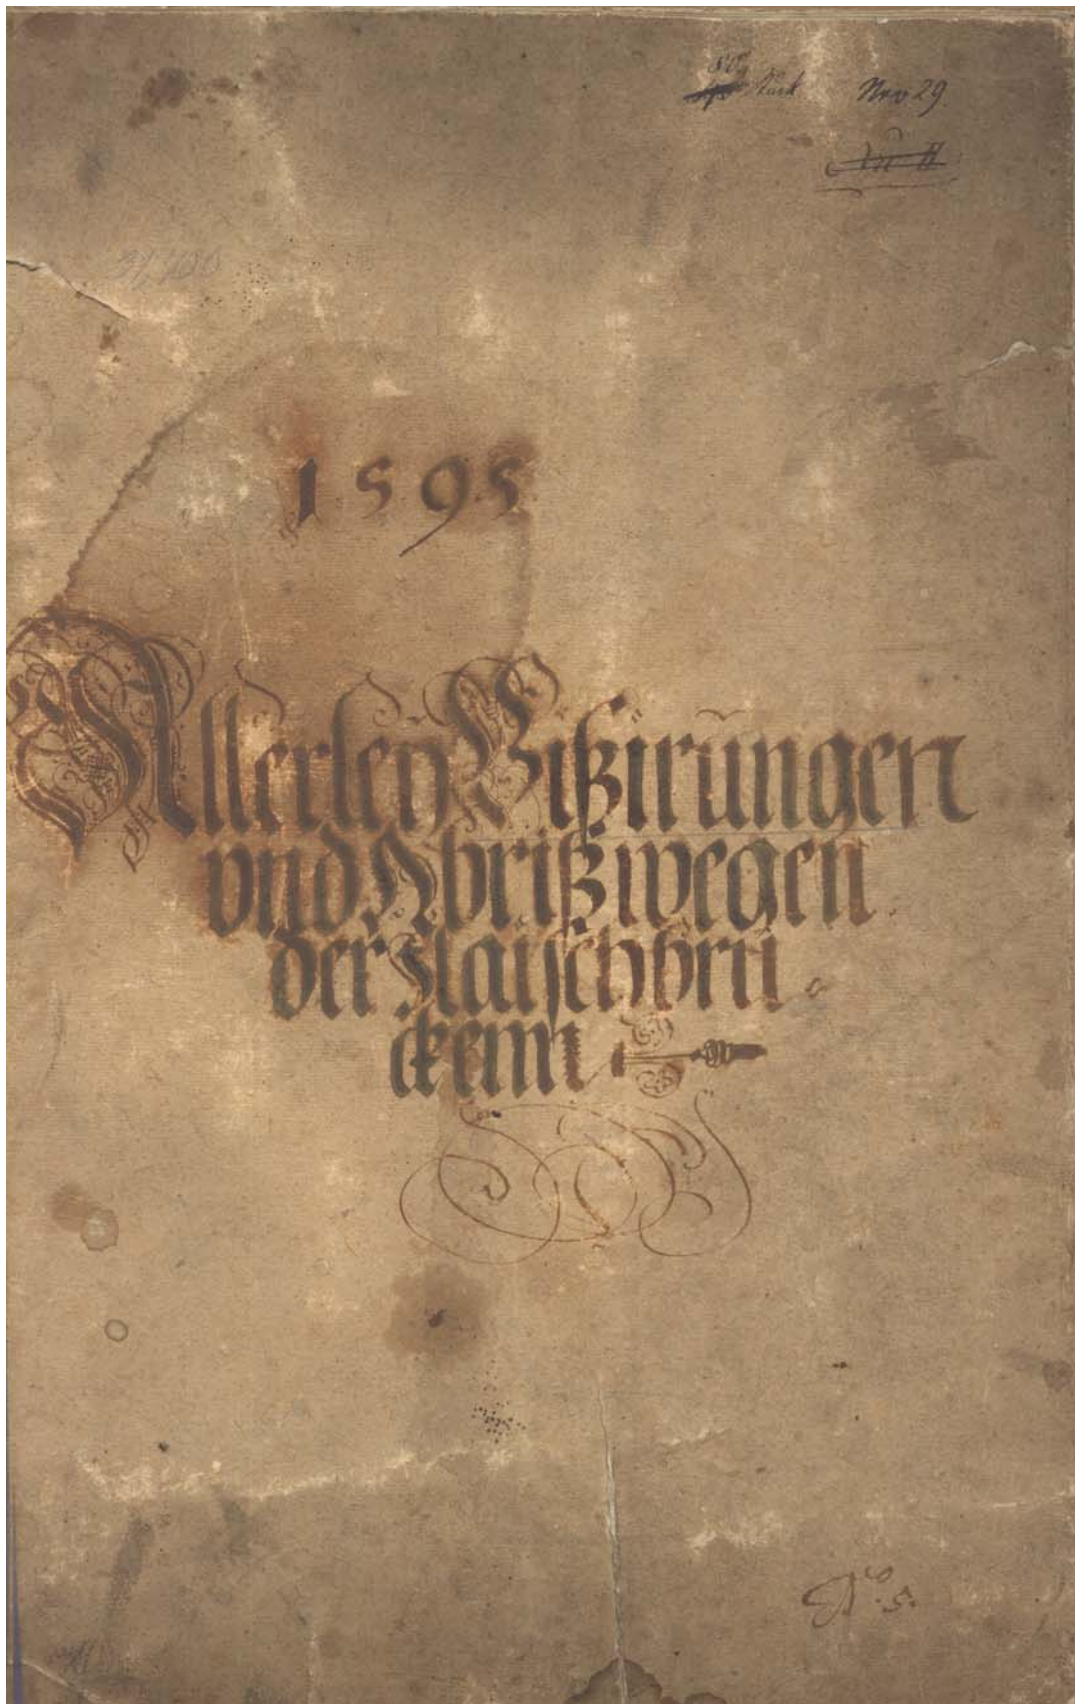 Stuck Nro 29
1595
Allerleÿ Vißirŭngen
vnd Abriß wegen
der Flaischbrŭ
ckenn
No. 5.